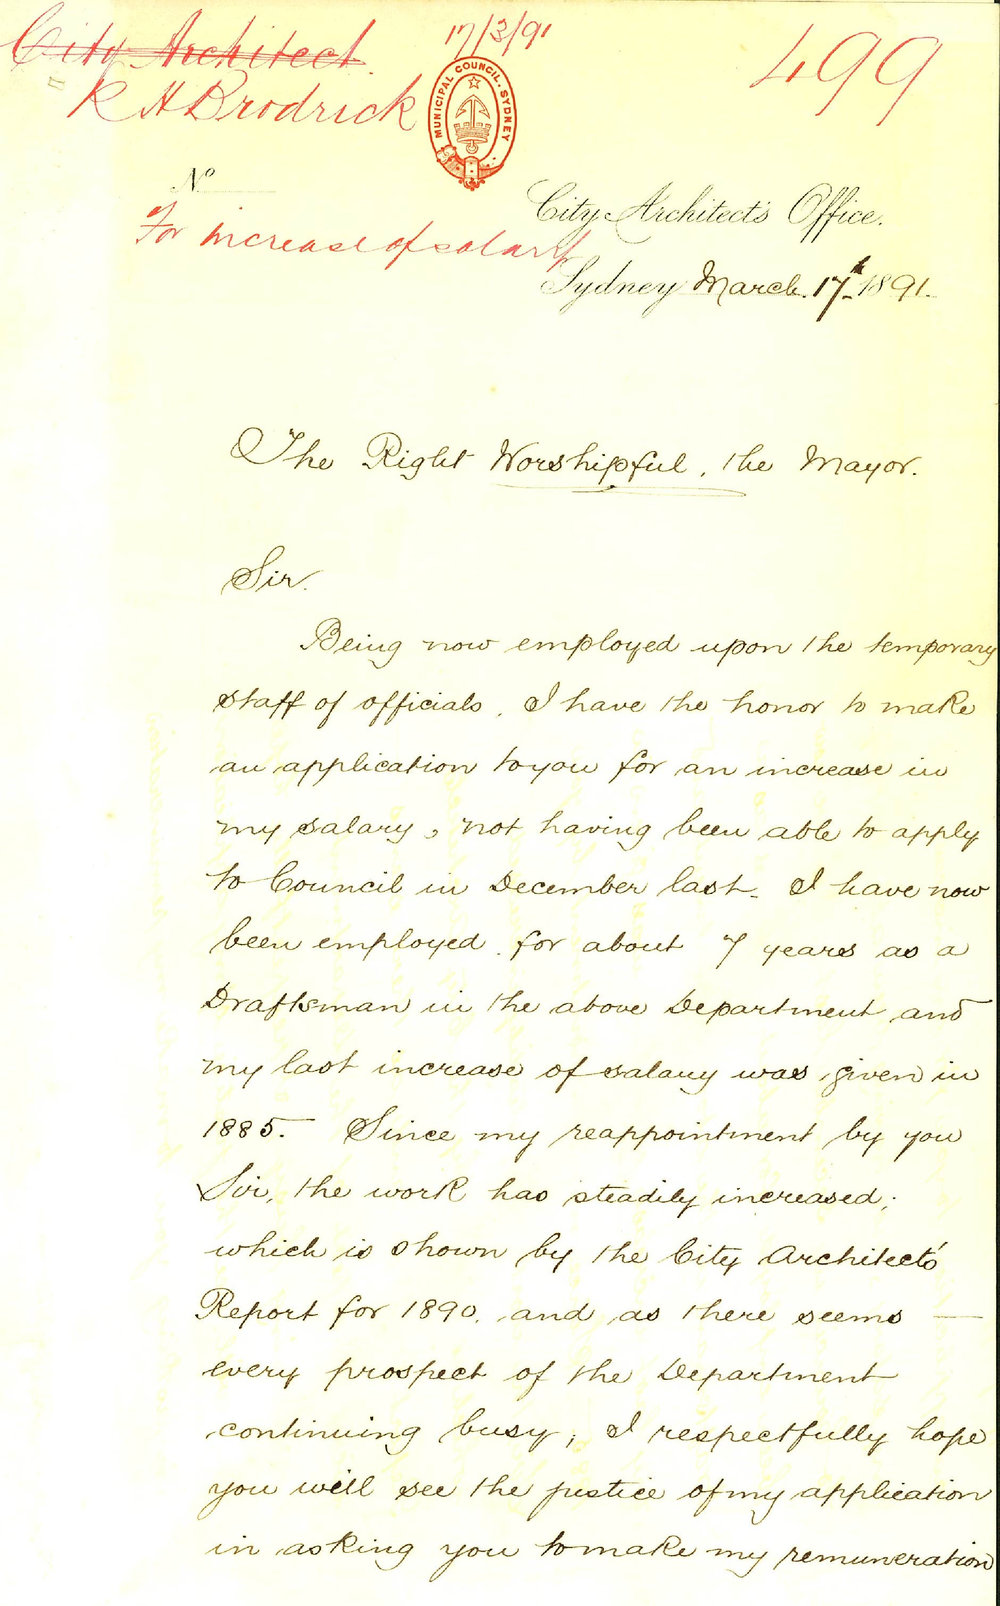 City Architect
17/3/91
499
R H Brodrick
MUNICIPAL COUNCIL. SYDNEY
No
City Architect's Office.
For increase of salary
Sydney March. 17th 1891.
The Right Worshipful, the Mayor.
Sir.
Being now employed upon the temporary
staff of officials, I have the honor to make
an application to you for an increase in
my salary, not having been able to apply
to Council in December last. I have now
been employed for about 7 years as a
Draftsman in the above Department and
my last increase of salary was given in
1885. Since my reappointment by you
Sir, the work has steadily increased;
which is shown by the City Architect's
Report for 1890, and as there seems —
every prospect of the Department
continuing busy, I respectfully hope
you will see the justice of my application
in asking you to make my remuneration